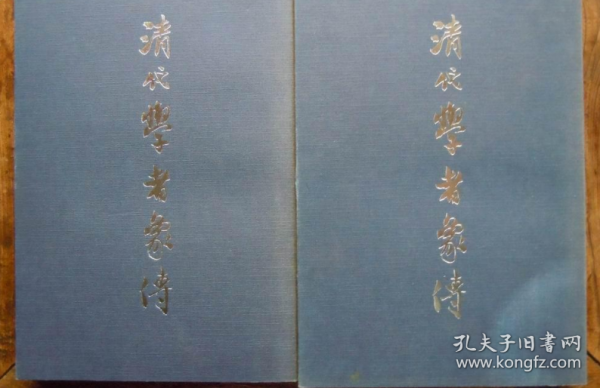 清代學者象傳
清代學者象傳
孔夫子旧書网
www.kongfz.com